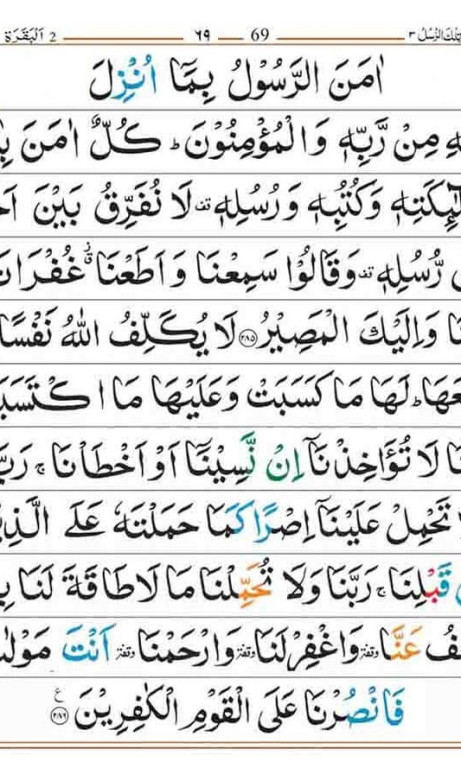 تِلْكَ الرُّسُلُ ٣ 69 ٦٩ اَلْبَقَرَة 2
اٰمَنَ الرَّسُوْلُ بِمَاۤ اُنْزِلَ
مِنْ رَّبِّهٖ وَالْمُؤْمِنُوْنَ ؕ كُلٌّ اٰمَنَ
وَكُتُبِهٖ وَرُسُلِهٖ لَا نُفَرِّقُ بَيْنَ
رُّسُلِهٖ وَقَالُوْا سَمِعْنَا وَاَطَعْنَا غُفْرَانَ
وَاِلَيْكَ الْمَصِيْرُ ﴿۲۸۵﴾ لَا يُكَلِّفُ اللّٰهُ نَفْسًا
لَهَا مَا كَسَبَتْ وَعَلَيْهَا مَا اكْتَسَبَ
لَا تُؤَاخِذْنَاۤ اِنْ نَّسِيْنَاۤ اَوْ اَخْطَاْنَا ۚ رَبَّ
تَحْمِلْ عَلَيْنَاۤ اِصْرًا كَمَا حَمَلْتَهٗ عَلَى الَّذِيْ
قَبْلِنَا ۚ رَبَّنَا وَلَا تُحَمِّلْنَا مَا لَا طَاقَةَ لَنَا بِ
عَنَّا وَاغْفِرْ لَنَا وَارْحَمْنَا اَنْتَ مَوْلٰ
فَانْصُرْنَا عَلَى الْقَوْمِ الْكٰفِرِيْنَ ﴿۲۸۶﴾ ع